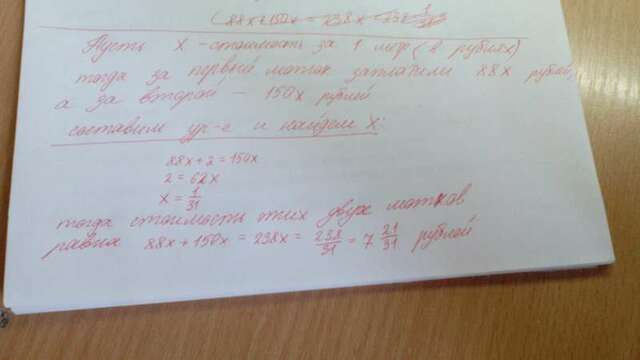 (88x+150x = 238x = 238 · 1/31
Пусть x - стоимость за 1 метр (в рублях)
тогда за первый моток заплатили 88x рублей,
а за второй — 150x рублей
составим ур-е и найдем x:
88x + 2 = 150x
2 = 62x
x = 1/31
тогда стоимость этих двух мотков
равна 88x + 150x = 238x = 238/31 = 7 21/31 рублей